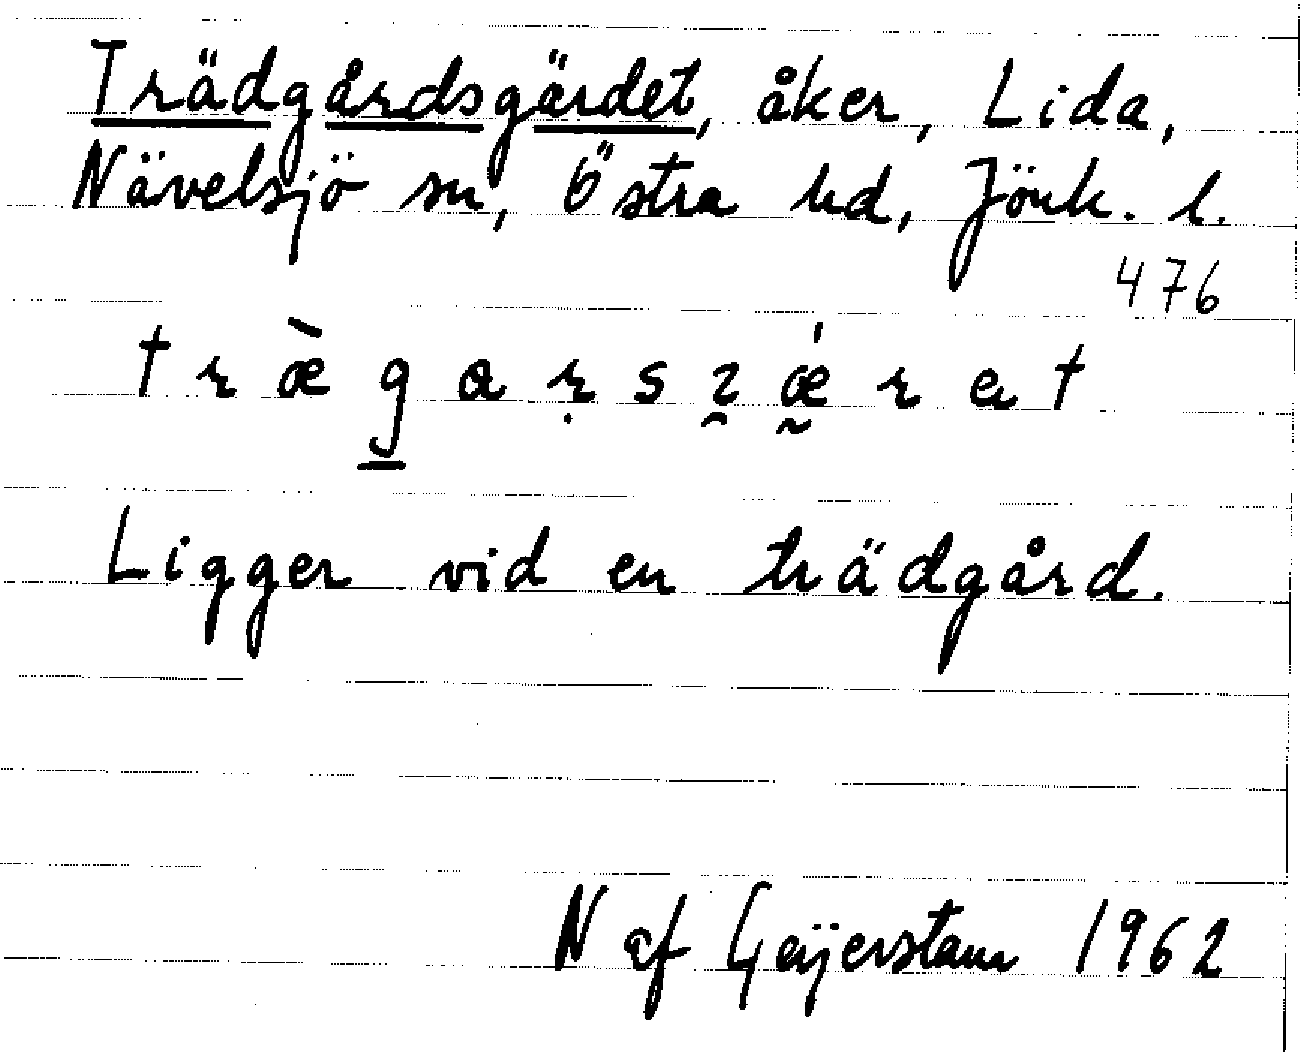 Trädgårdsgärdet, åker, Lida,
Nävelsjö sn, Östra hd, Jönk. l.
476
Ligger vid en trädgård.
N af Geijerstam 1962